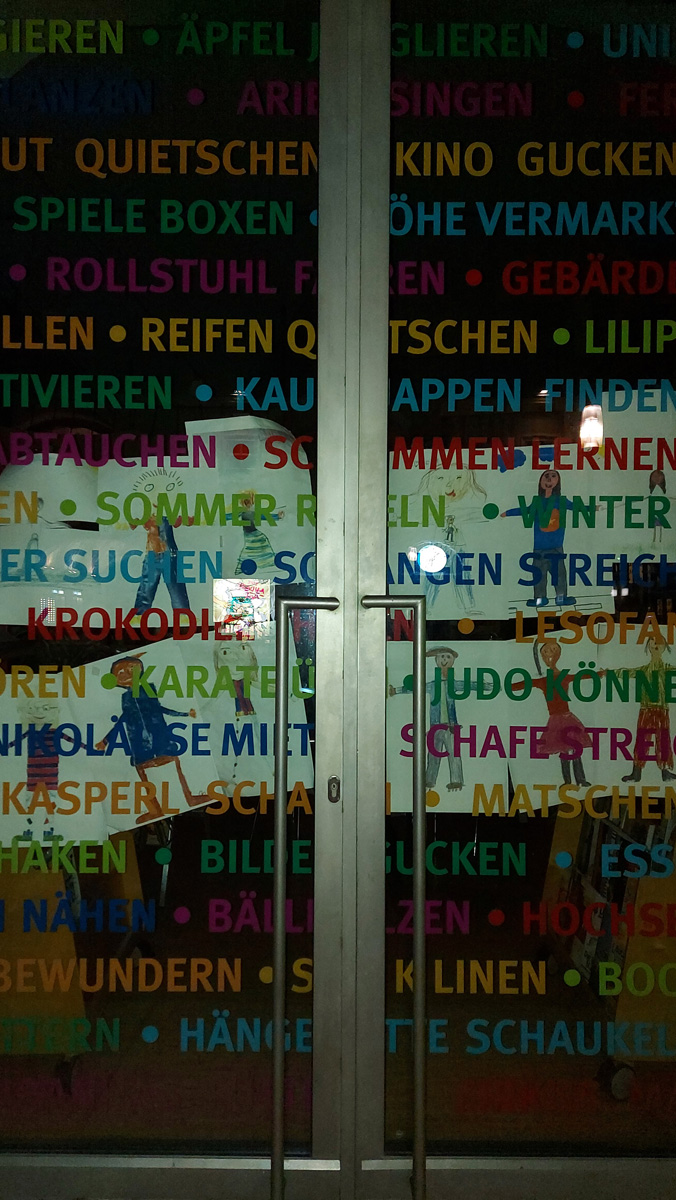 GIEREN • ÄPFEL J GLIEREN • UNI
LANZEN • ARIE SINGEN • FER
UT QUIETSCHEN KINO GUCKEN
SPIELE BOXEN • ÖHE VERMARK
• ROLLSTUHL FA REN • GEBÄRDE
LLEN • REIFEN QU TSCHEN • LILIP
TIVIEREN • KAU APPEN FINDEN
ABTAUCHEN • SC MMEN LERNEN
EN • SOMMER R ELN • WINTER
ER SUCHEN • SC ANGEN STREICH
KROKODIL N • LESOFAN
ÖREN • KARATE Ü • JUDO KÖNNE
NIKOLÄUSE MIET SCHAFE STREIC
KASPERL SCHA N • MATSCHEN
HAKEN • BILDE GUCKEN • ESS
N NÄHEN • BÄLL LZEN • HOCHSE
BEWUNDERN • S K LINEN • BOC
TTERN • HÄNGE TTE SCHAUKEL